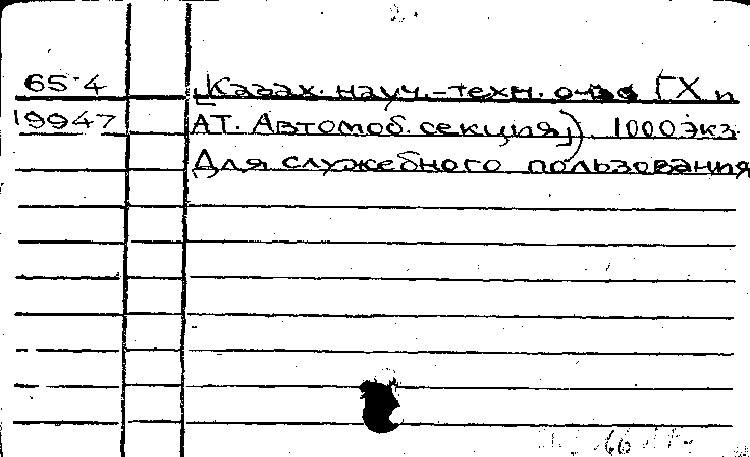 2.
65-4 [Казах. науч.-техн. о-во ГХ и
19947 АТ. Автомоб. секция]). 1000 экз.
Для служебного пользования
66